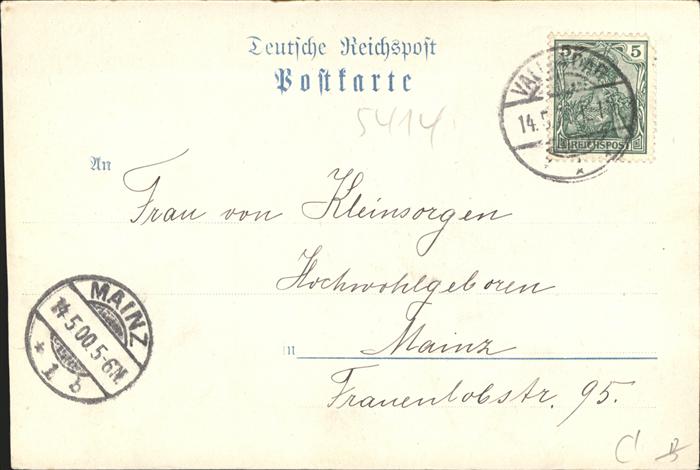 Deutsche Reichspost
Postkarte
5414
5 5
REICHSPOST
VALLENDAR
14.5
An
Frau von Kleinsorgen
Hochwohlgeboren
in Mainz
Frauenlobstr. 95.
MAINZ
14.5.00.5-6N.
* 1 b